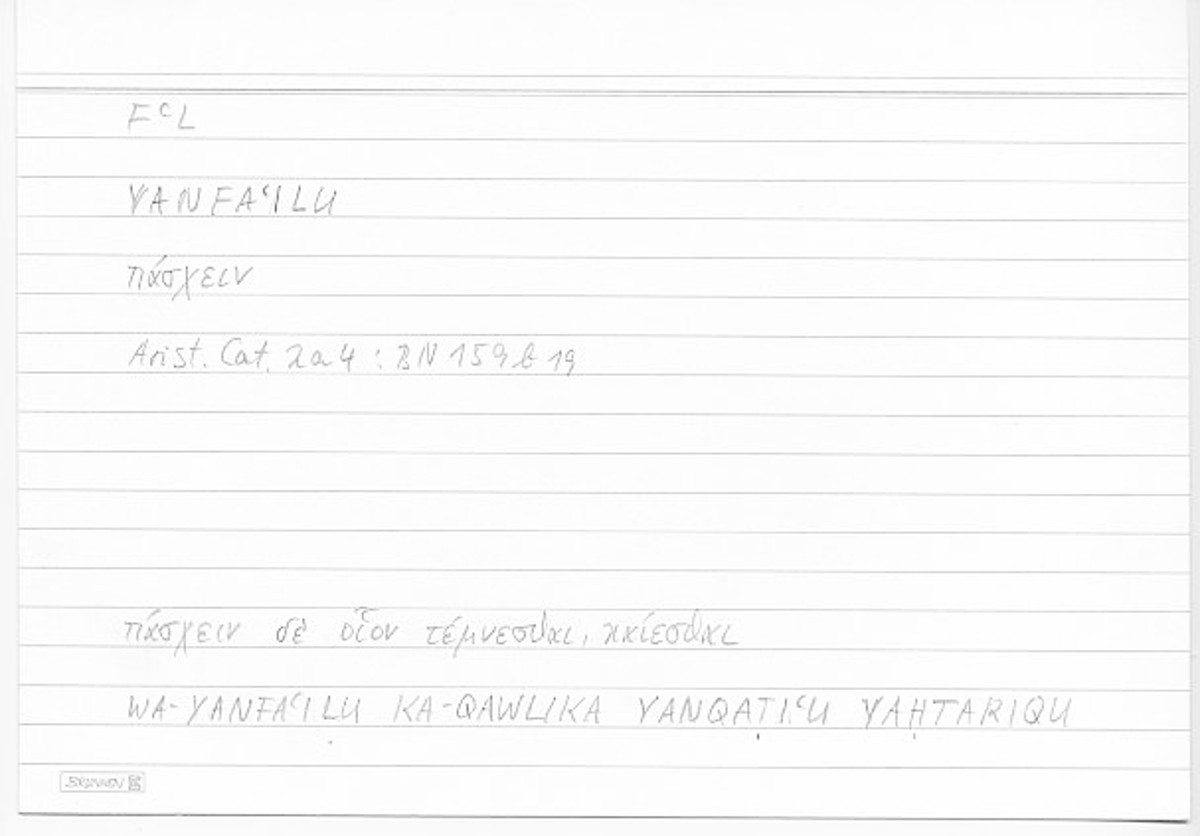 FʿL
YANFAʿILU
πάσχειν
Arist. Cat. 2a4 : BN 159b19
πάσχειν δὲ οἷον τέμνεσθαι, καίεσθαι
WA-YANFAʿILU KA-QAWLIKA YANQAṬIʿU YAḤTARIQU
BRUNNEN